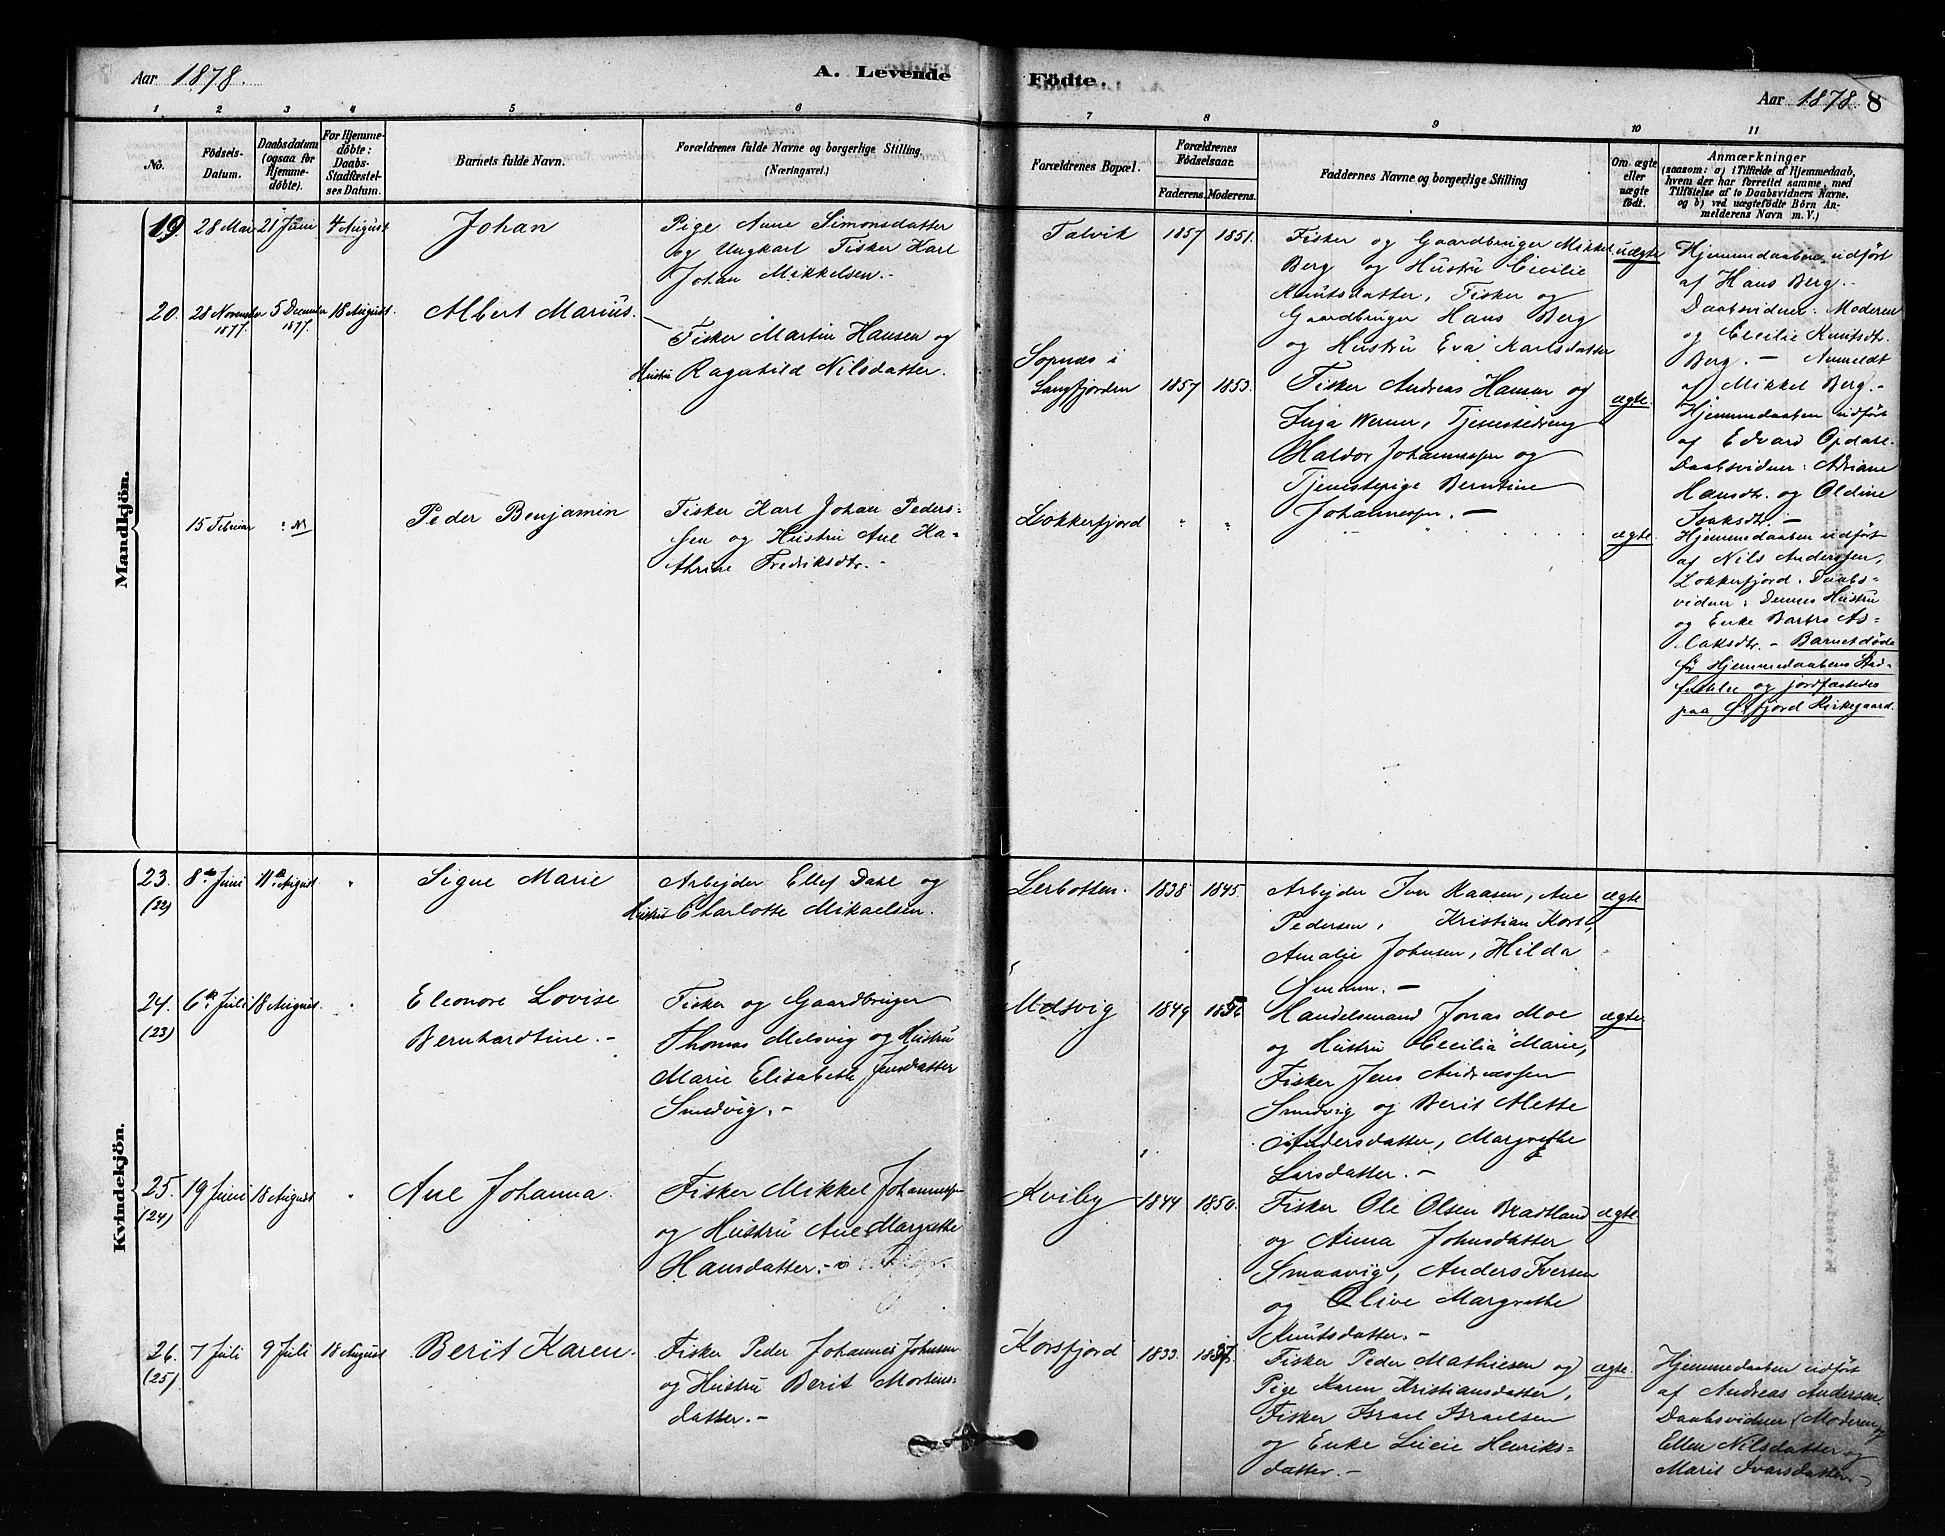 Aar 1878.
A. Levende
Födte.
Aar 1878. 8
1 2 3 4 5 6 7 8 9 10 11
No.
Födsels-
Datum.
Daabsdatum
(ogsaa for
Hjemme-
döbte).
For Hjemme-
döbte:
Daabs-
Stadfæstel-
ses Datum.
Barnets fulde Navn.
Forældrenes fulde Navne og borgerlige Stilling.
(Næringsvei.)
Forældrenes Bopæl.
Forældrenes
Födselsaar.
Faderens. Moderens.
Faddernes Navne og borgerlige Stilling
Om ægte
eller
uægte
födt.
Anmærkninger
(saasom: a) i Tilfælde af Hjemmedaab,
hvem der har forrettet samme, med
Tilföielse af to Daabsvidners Navne.
og b) ved uægtefödte Börn An-
melderens Navn m. V.)
Mandkjön.
19. 28 Mai 21 Juni 4 August Johan
Pige Ane Simonsdatter
og Ungkarl Fisker Karl
Johan Mikkelsen.-
Talvik 1857 1851.
Fisker og Gaardbruger Mikkel
Berg og Hustru Cecilie
Knutsdatter, Fisker og
Gaardbruger Hans Berg
og Hustru Eva Karlsdatter
uægte
Hjemmedaaben udført
af Hans Berg.-
Daabsvidner: Moderen
og Cecilie Knutsdtr.
Berg. - Anmeldt
af Mikkel Berg.-
20. 28 November 5 December 18 August. Albert Marius.
1877. 1877.
Fisker Martin Hansen og
Hustru Ragnhild Nilsdatter.
Sopnæs i
Langfjorden 1857 1853.
Fisker Andreas Hansen og
Inga Werner, Tjenestedreng
Haldor Johannessen og
Tjenestepige Berntine
Johannessen. -
ægte.
Hjemmedaaben udført
af Edvard Opdal.
Daabsvidner: Adriane
Hansdtr. og Oldine
Isaksdtr. -
15 Februar Peder Benjamin
Fisker Karl Johan Peders-
sen og Hustru Ane Ka-
thrine Fredriksdtr. -
Lokkerfjord " "
ægte.
Hjemmedaaben udført
af Nils Anderssen,
Lokkerfjord. Daabs-
vidner: Dennes Hustru
og Enke Barbro As-
laksdtr. - Barnet døde
før Hjemmedaabens Stad-
fæstelse og jordfæstedes
paa Øxfjord Kirkegaard.
Kvindekjön.
23. 8de Juni 11te August. " Signe Marie
(22)
Arbejder Ellef Dahl og
Hustru Charlotte Mikaelsen.
Lerbotten. 1838 1845.
Arbejder Iver Kaasen, Ane
Pedersen, Kristian Kors,
Amalie Johnsen, Hilda
ægte
24. 6te Juli 18 August. " Eleonore Lovise
(23) Bernhardtine. -
Fisker og Gaardbruger
Thomas Melsvig og Hustru
Marie Elisabeth Jensdatter
Smedvig. -
Melsvig 1849
Handelsmand Jonas Moe
og Hustru Cecilia Marie,
Fisker Jens Andreassen
Smedvig og Berit Alette
Andersdatter, Margrethe
Larsdatter. -
ægte
25. 19 Juni 18 August " Ane Johanna.
(24)
Fisker Mikkel Johannessen
og Hustru Ane Margrethe
Hansdatter. -
Kviby 1844 1850.
Fisker Ole Olsen Bradtland
og Anna Johnsdatter
Smaavig, Anders Iversen
og Olive Margrethe
Knutsdatter. -
ægte
26. 7 Juli 9 Juli 18 August Berit Karen.
(25)
Fisker Peder Johannes Johnsen
og Hustru Berit Mortens-
datter. -
Korsfjord 1833. 1837.
Fisker Peder Mathiesen og
Pige Karen Kristiansdatter,
Fisker Israel Israelsen
og Enke Henriks-
datter. -
ægte.
Hjemmedaaben udført
af Andreas Andersen.
Daabsvidner (Moderen og
Ellen Nilsdatter og
Marit Ivarsdatter. -